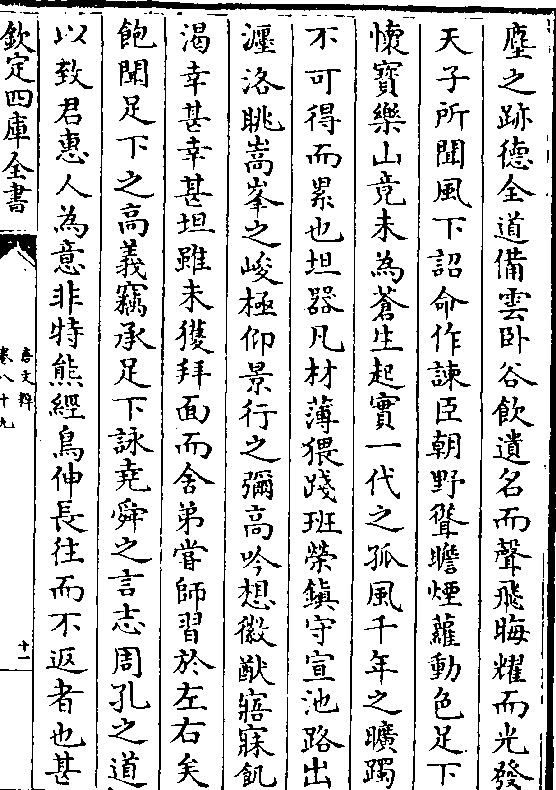 塵之跡德全道備雲卧谷飲遺名而聲飛晦耀而光發
天子所聞風下詔命作諫臣朝野聳瞻煙蘿動色足下
懷寶樂山竟未為蒼生起實一代之孤風千年之曠躅
不可得而累也坦器凡材薄猥踐班榮鎮守宣池路出
瀍洛眺嵩峯之峻極仰景行之彌高吟想徽猷寤寐飢
渴幸甚幸甚坦雖未獲拜面而舍弟嘗師習於左右矣
飽聞足下之高義竊承足下詠堯舜之言志周孔之道
以致君惠人為意非特熊經鳥伸長往而不返者也甚
欽定四庫全書
唐文粹
卷八十九
十一